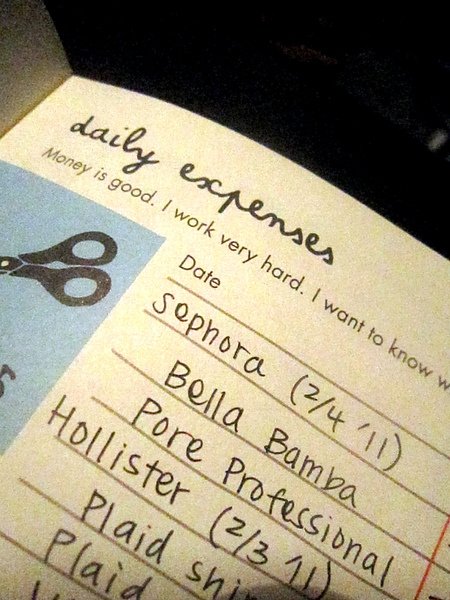 daily expenses
Money is good. I work very hard. I want to know
Date
Sephora (2/4 '11)
Bella Bamba
Pore Professional
Hollister (2/3 '11)
Plaid
Plaid